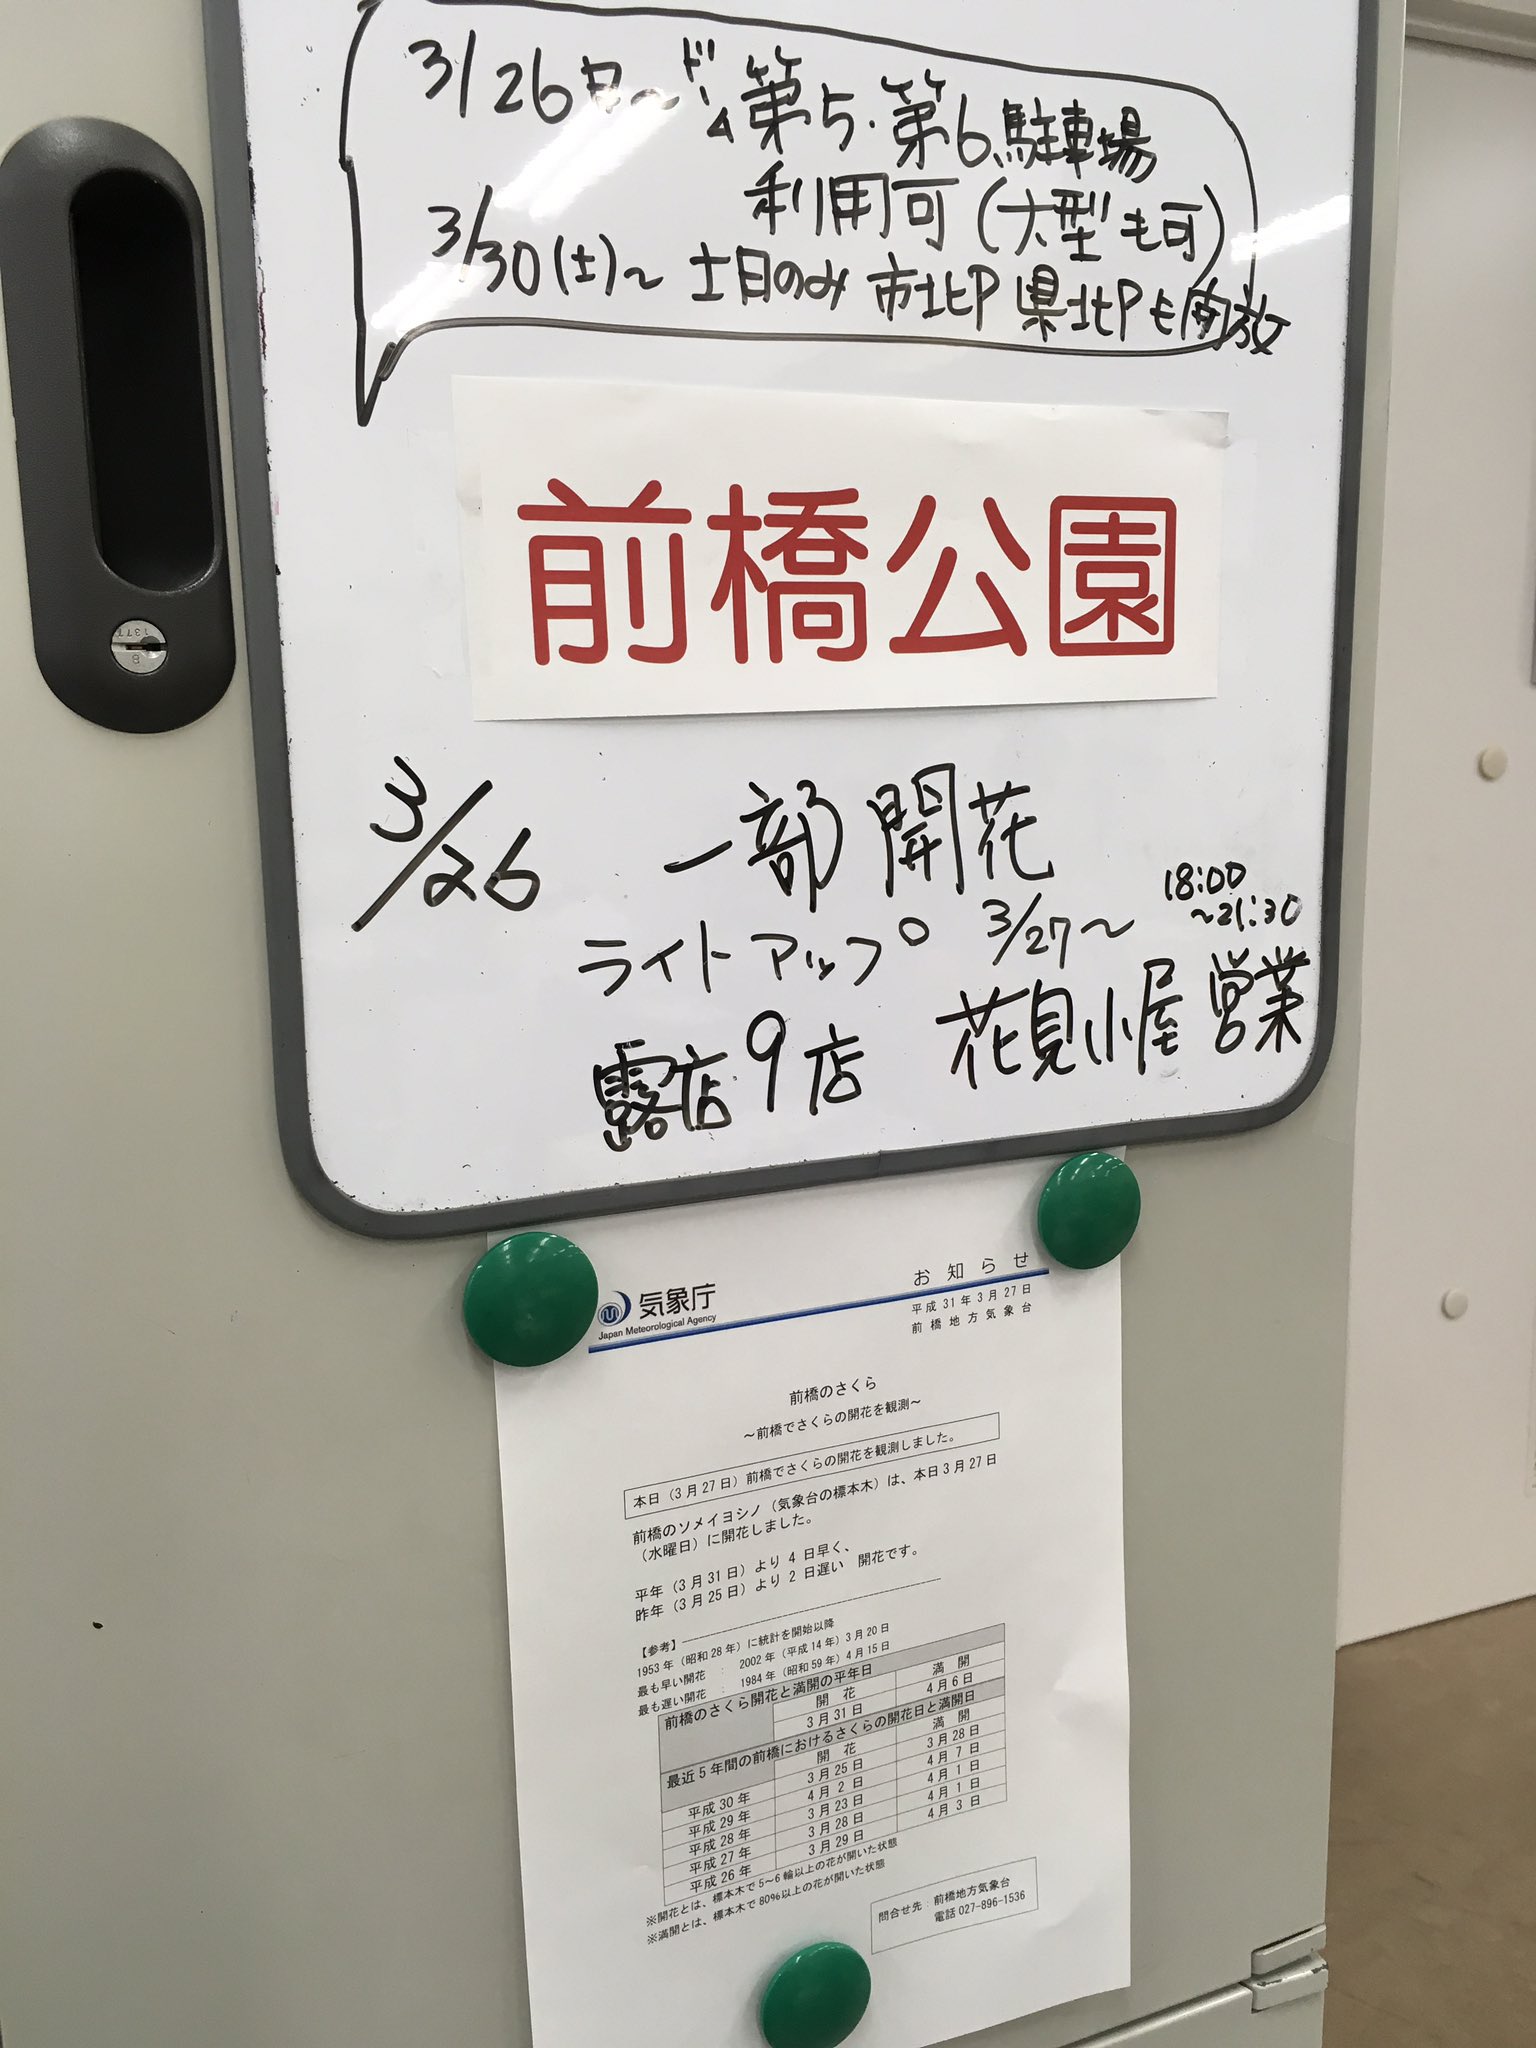 3/26 〜 ドーム第5・第6駐車場
利用可(大型も可)
3/30(土)〜 土日のみ 市北P 県北Pも開放
前橋公園
3/26 一部開花
ライトアップ 3/27〜 18:00
〜21:30
露店9店 花見小屋営業
気象庁
Japan Meteorological Agency
お知らせ
平成31年3月27日
前橋地方気象台
前橋のさくら
〜前橋でさくらの開花を観測〜
本日(3月27日)前橋でさくらの開花を観測しました。
前橋のソメイヨシノ(気象台の標本木)は、本日3月27日
(水曜日)に開花しました。
平年(3月31日)より 4 日早く、
昨年(3月25日)より 2 日遅い 開花です。
【参考】
1953年(昭和28年)に統計を開始以降
最も早い開花 : 2002年(平成14年)3月20日
最も遅い開花 : 1984年(昭和59年)4月15日
前橋のさくら開花と満開の平年日
開 花 満 開
3月31日 4月6日
最近5年間の前橋におけるさくらの開花日と満開日
開 花 満 開
平成30年 3月25日 3月28日
平成29年 4月 2日 4月 7日
平成28年 3月23日 4月 1日
平成27年 3月28日 4月 1日
平成26年 3月29日 4月 3日
※開花とは、標本木で5〜6輪以上の花が開いた状態
※満開とは、標本木で80%以上の花が開いた状態
問合せ先 前橋地方気象台
電話 027-896-1536